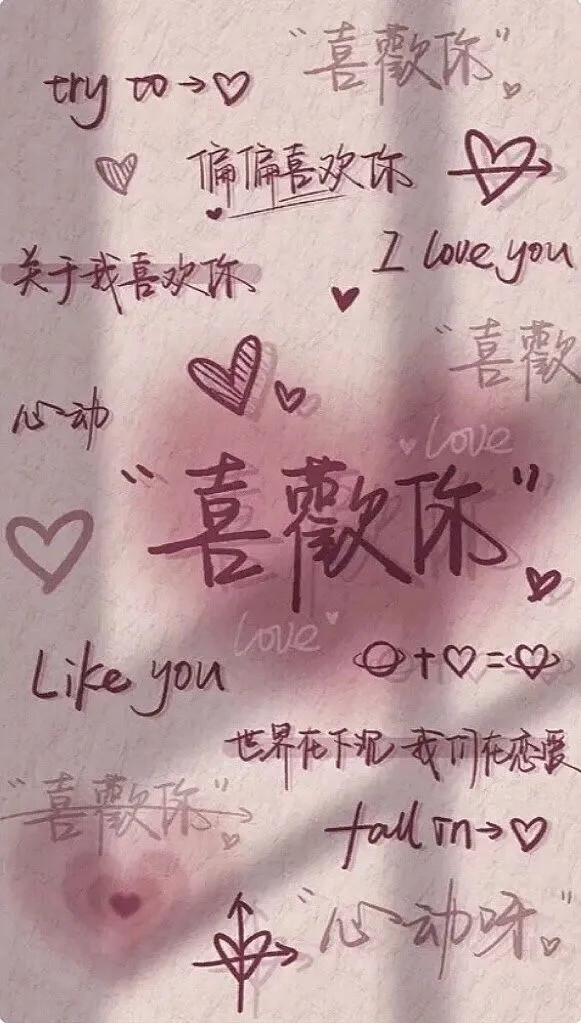 "喜歡你"
try to→♡
偏偏喜欢你
I love you
关于我喜欢你
"喜歡
心动
love
"喜歡你"
love
Like you
世界在下沉 我们在恋爱
"喜歡你"
fall in→♡
"心动呀"